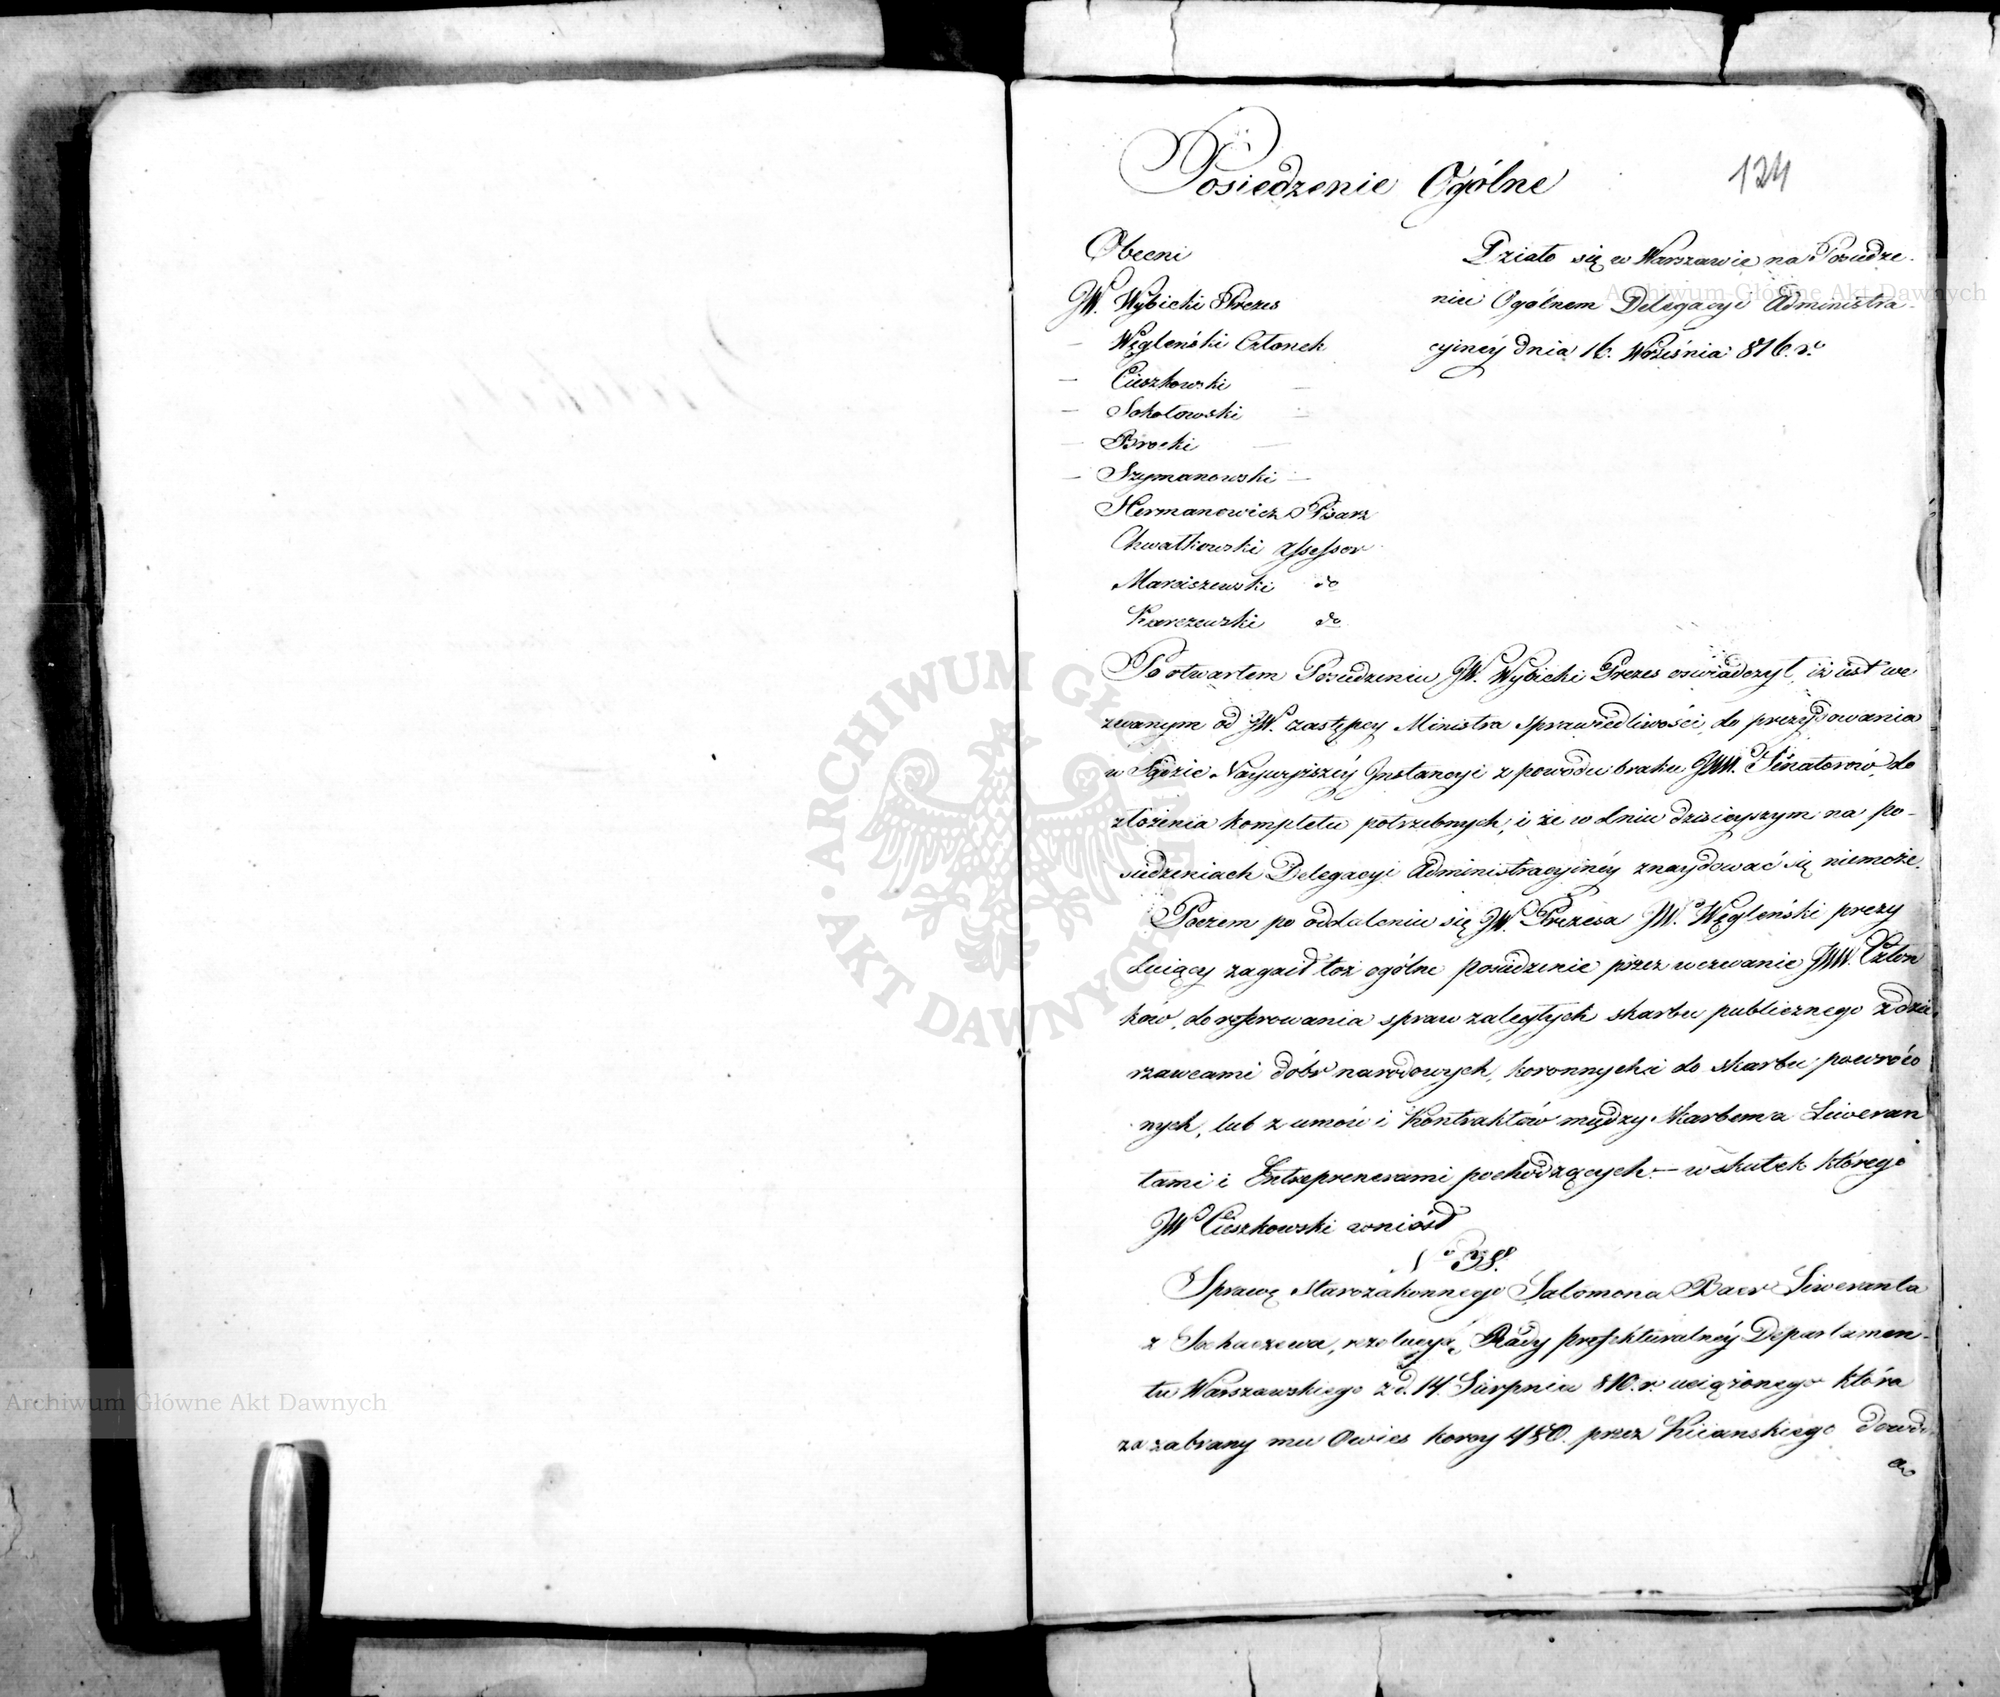 Posiedzenie Ogólne
124
Obecni
JW. Wybicki Prezes
— Węgleński Członek
— Cieszkowski —
— Sokołowski —
— Brocki —
— Szymanowski —
Hermanowicz Pisarz
Chwatkowski Assessor
Marciszewski do
Karczewski do
Działo się w Warszawie na Posiedze-
niu Ogólnem Delegacyi Administra-
cyinéy dnia 16. Września 816. r.
Po otwartem Posiedzeniu JW. Wybicki Prezes oswiadczył, iż iest we
zwanym od JW. zastępcy Ministra Sprawiedliwości, do prezydowania
w Sądzie Naywyższéy Instancyi z powodu braku JWW. Senatorów, do
złożenia kompletu potrzebnych, i że w dniu dzisieyszym na po-
siedzeniach Delegacyi Administracyinéy znaydować się niemoże.
Poczem po oddaleniu się JW. Prezesa JW. Węgleński prezy
duiący zagaił toż ogólne posiedzenie przez wezwanie JWW. Człon
ków, do referowania spraw zaległych skarbu publicznego z dzie
rzawcami dóbr narodowych, koronnych i do skarbu powróco
nych, lub z umów i Kontraktów między Skarbem a Liweran
tami i Entreprenerami pochodzących — w skutek którego
JW Cieszkowski wniósł
No 38.
Sprawę Starozakonnego Salomona Baer Liweranta
z Sochaczewa, rezolucyą Rady prefekturalnéy Departamen-
tu Warszawskiego z d. 14. Sierpnia 810. r. uciążonego która
za zabrany mu Owies korcy 480. przez Kiianskiego